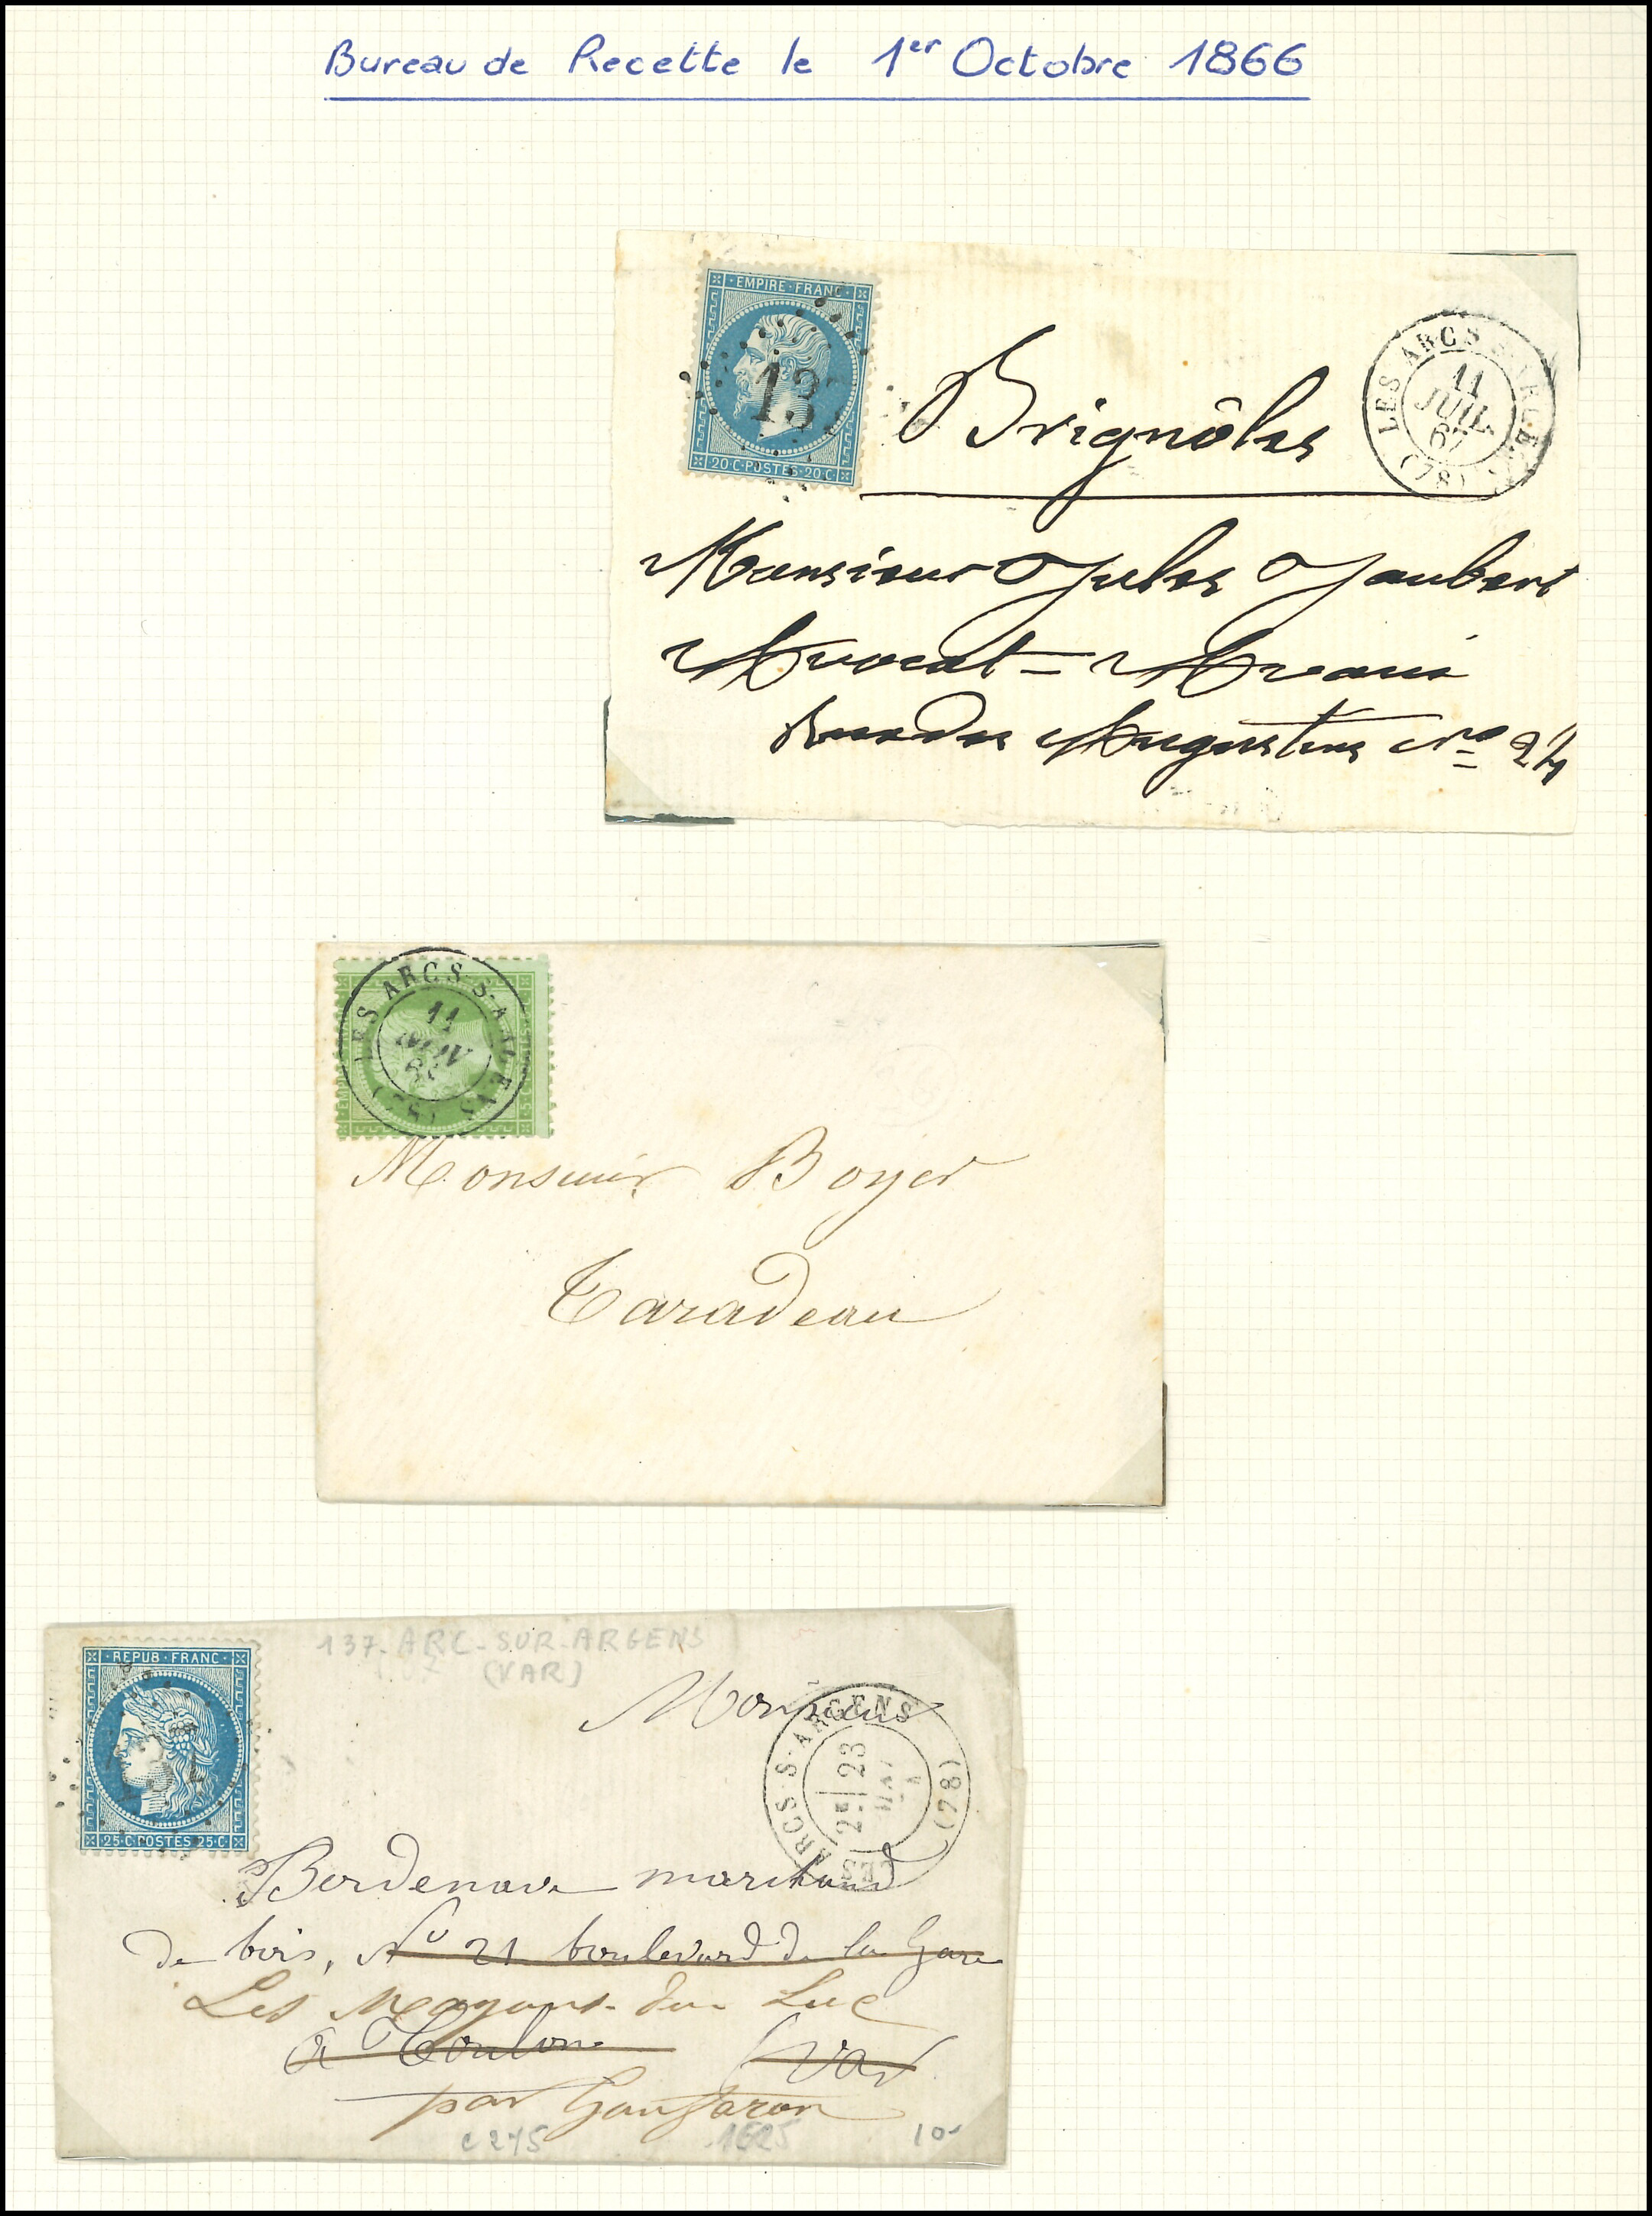 Bureau de Recette le 1er Octobre 1866
EMPIRE · FRANC ·
137
20·C·POSTES·20·C
LES ARCS S-ARGENS
11
JUIL
67
(78)
Brignôles
Monsieur Jules Jaubert
Avocat = Avoué
Rue des Augustins No 24
LES ARCS-S-ARGENS
11
(78)
Monsieur Boyer
Taradeau
137-ARC-SUR-ARGENS
(VAR)
REPUB · FRANC ·
25·C·POSTES·25·C
Monsieur
LES ARCS-S-ARGENS
2E 23
MAI
(78)
Bordenave marchand
de bois, No 21 boulevard de la Gare
Les Mayons-du Luc
à Toulon (var
par Gonfaron
c 275
1525
10-